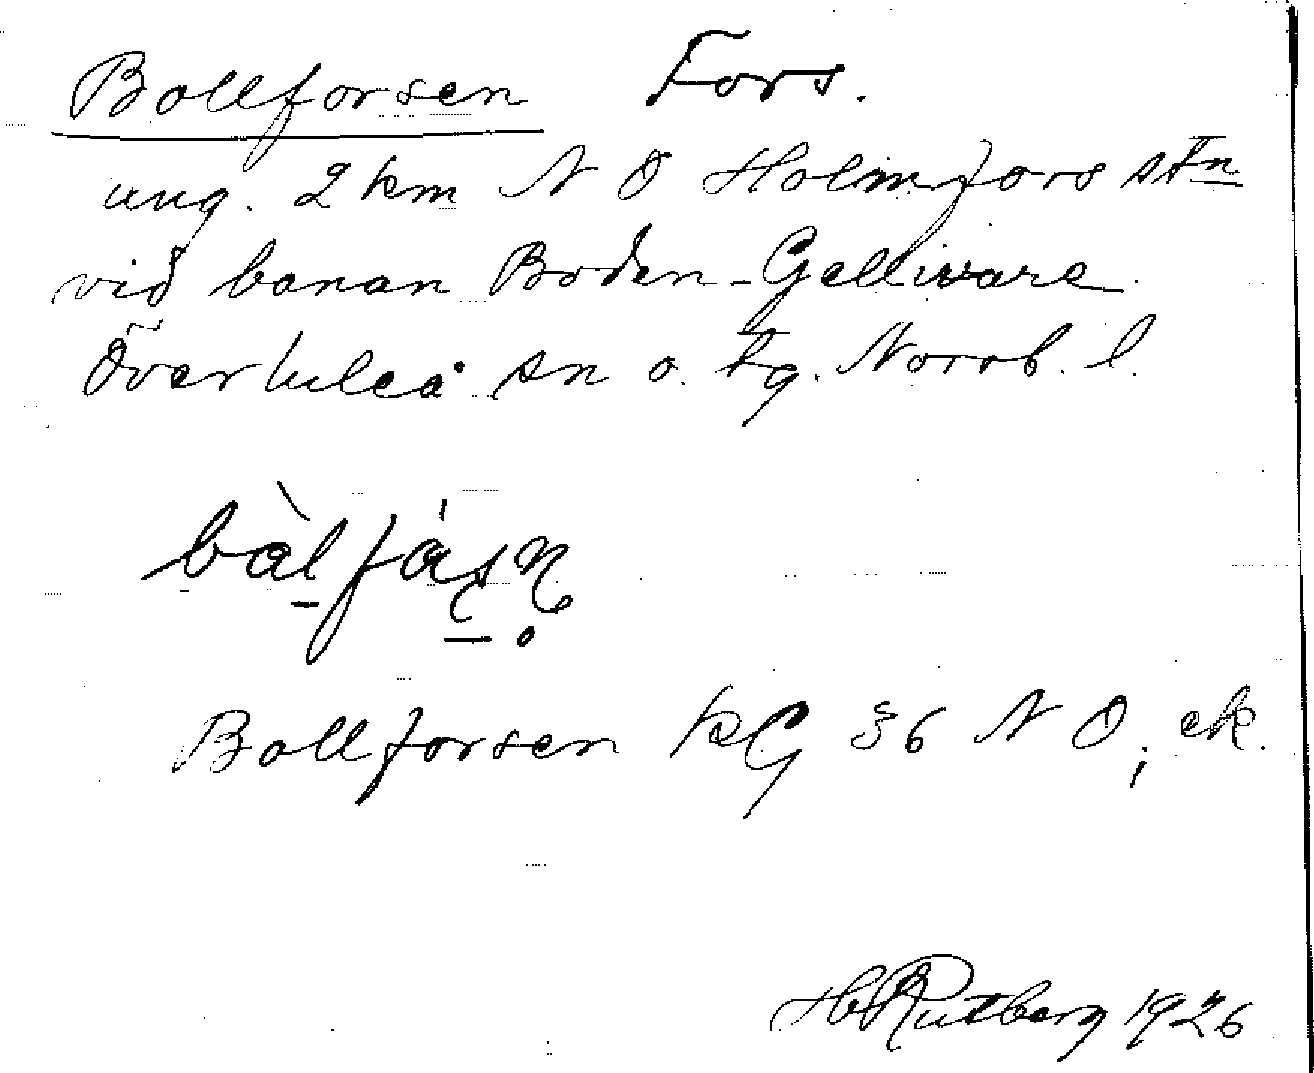 Bollforsen Fors.
ung. 2 km N O Holmfors stn
vid banan Boden-Gellivare
Överluleå sn o. tg. Norrb. l.
bàlfáʂn̥
Bollforsen kG 36 N O; ek.
H Rutberg 1926